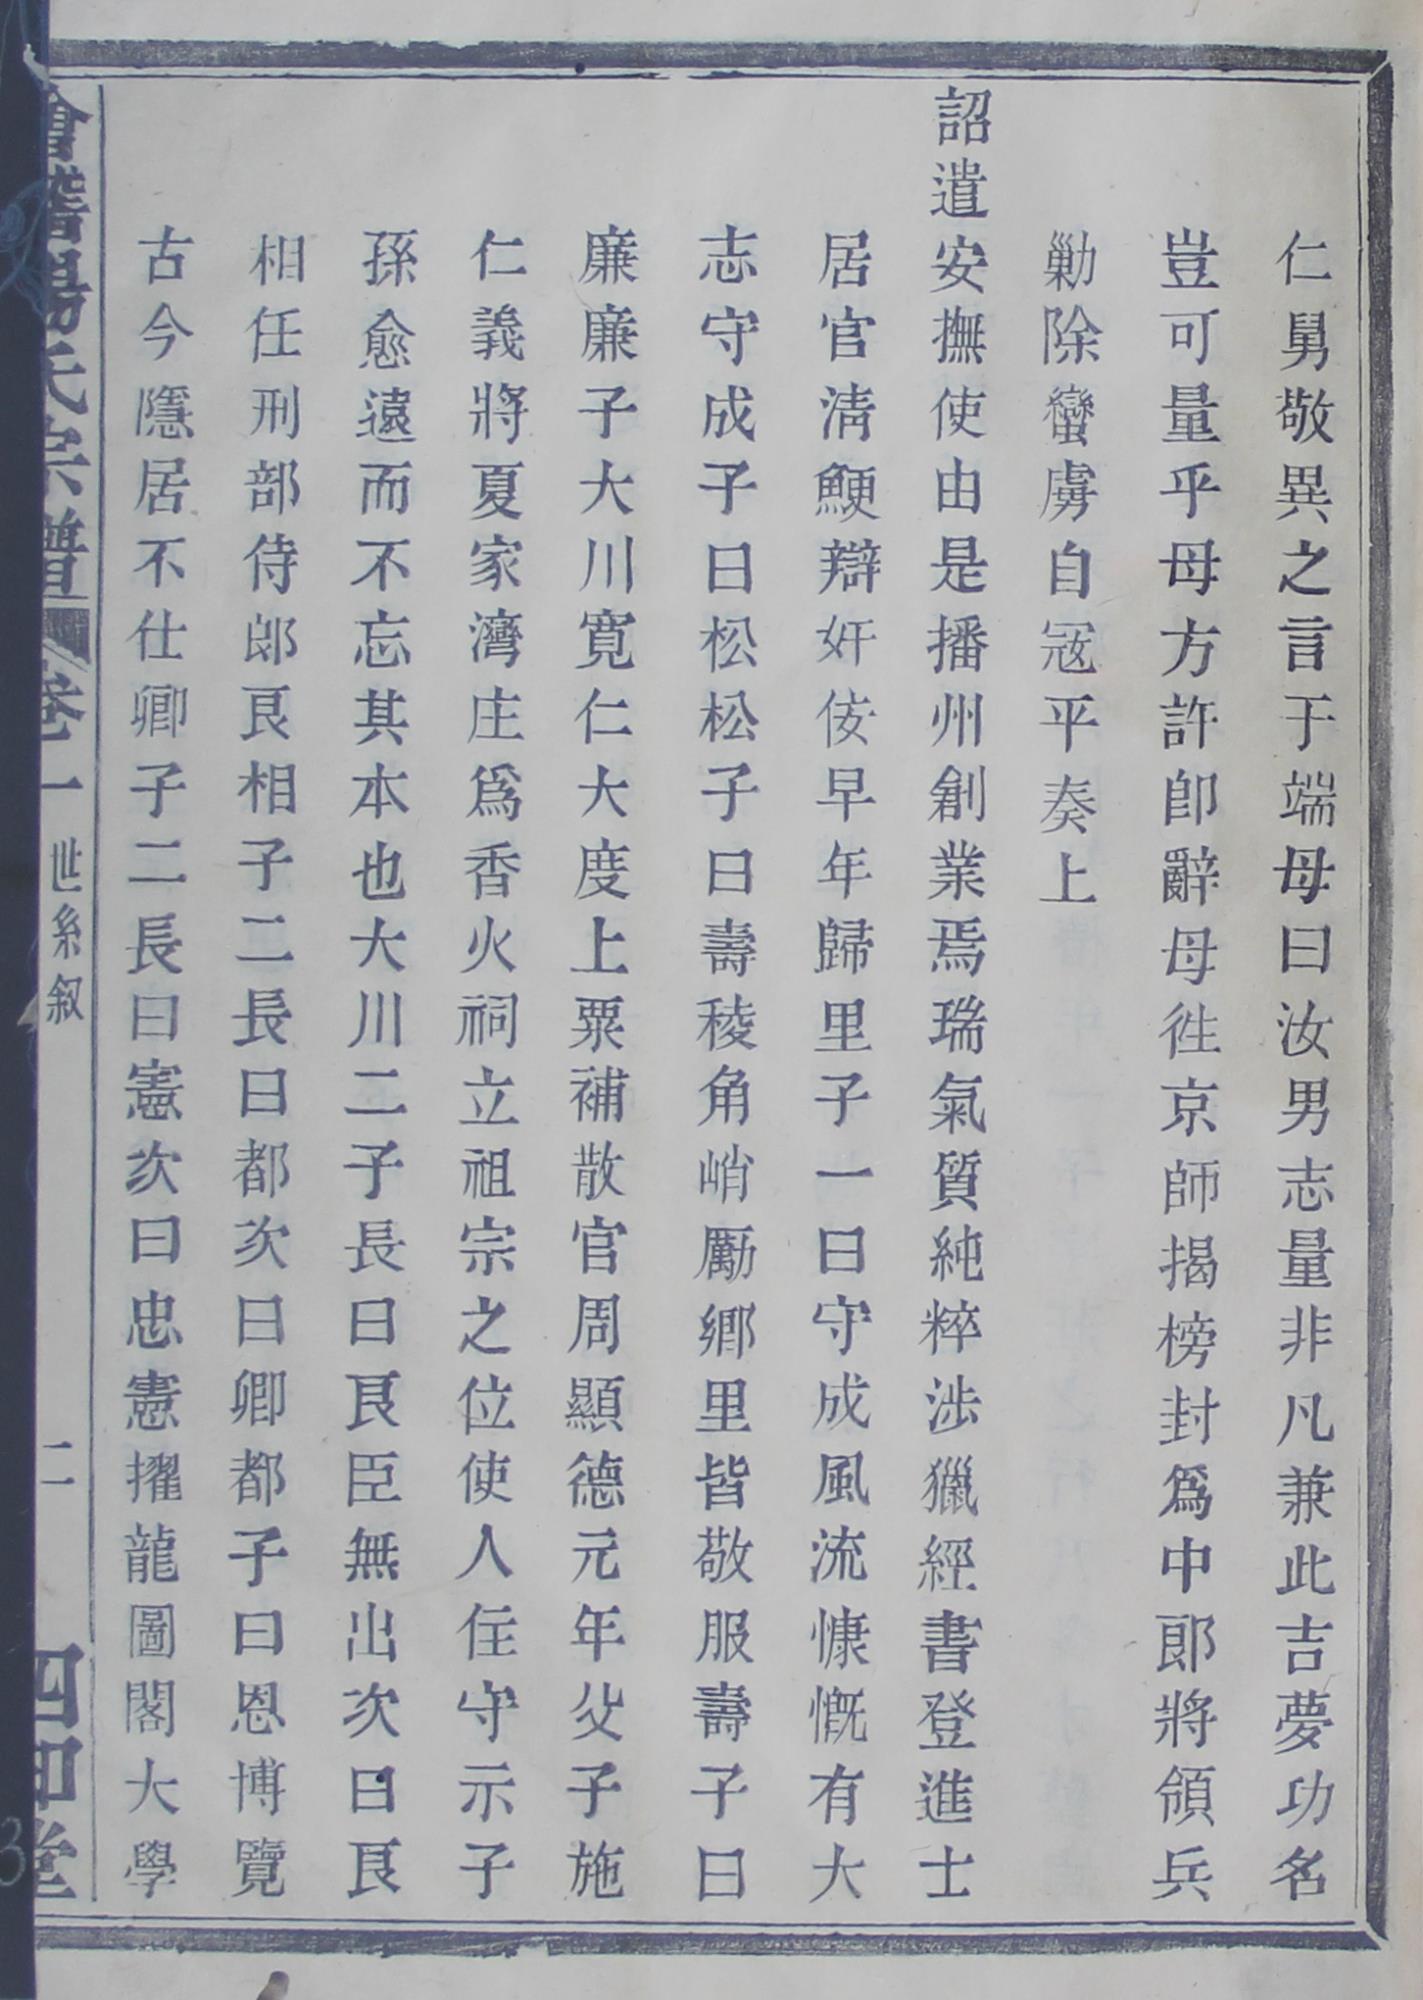 仁舅敬異之言于端母曰汝男志量非凡兼此吉夢功名
豈可量乎母方許卽辭母徃京師揭榜封爲中郞將領兵
勦除蠻虜自冦平奏上
詔遣安撫使由是播州創業焉瑞氣質純粹涉獵經書登進士
居官淸鯁辯奸佞早年歸里子一曰守成風流慷慨有大
志守成子曰松松子曰壽稜角峭厲鄉里皆敬服壽子曰
廉廉子大川寬仁大度上粟補散官周顯德元年父子施
仁義將夏家灣庄爲香火祠立祖宗之位使人住守示子
孫愈遠而不忘其本也大川二子長曰艮臣無出次曰艮
相任刑部侍郎艮相子二長曰都次曰卿都子曰恩博覽
古今隱居不仕卿子二長曰憲次曰忠憲擢龍圖閣大學
會稽楊氏宗譜 卷一 世系叙 二 四知堂
3